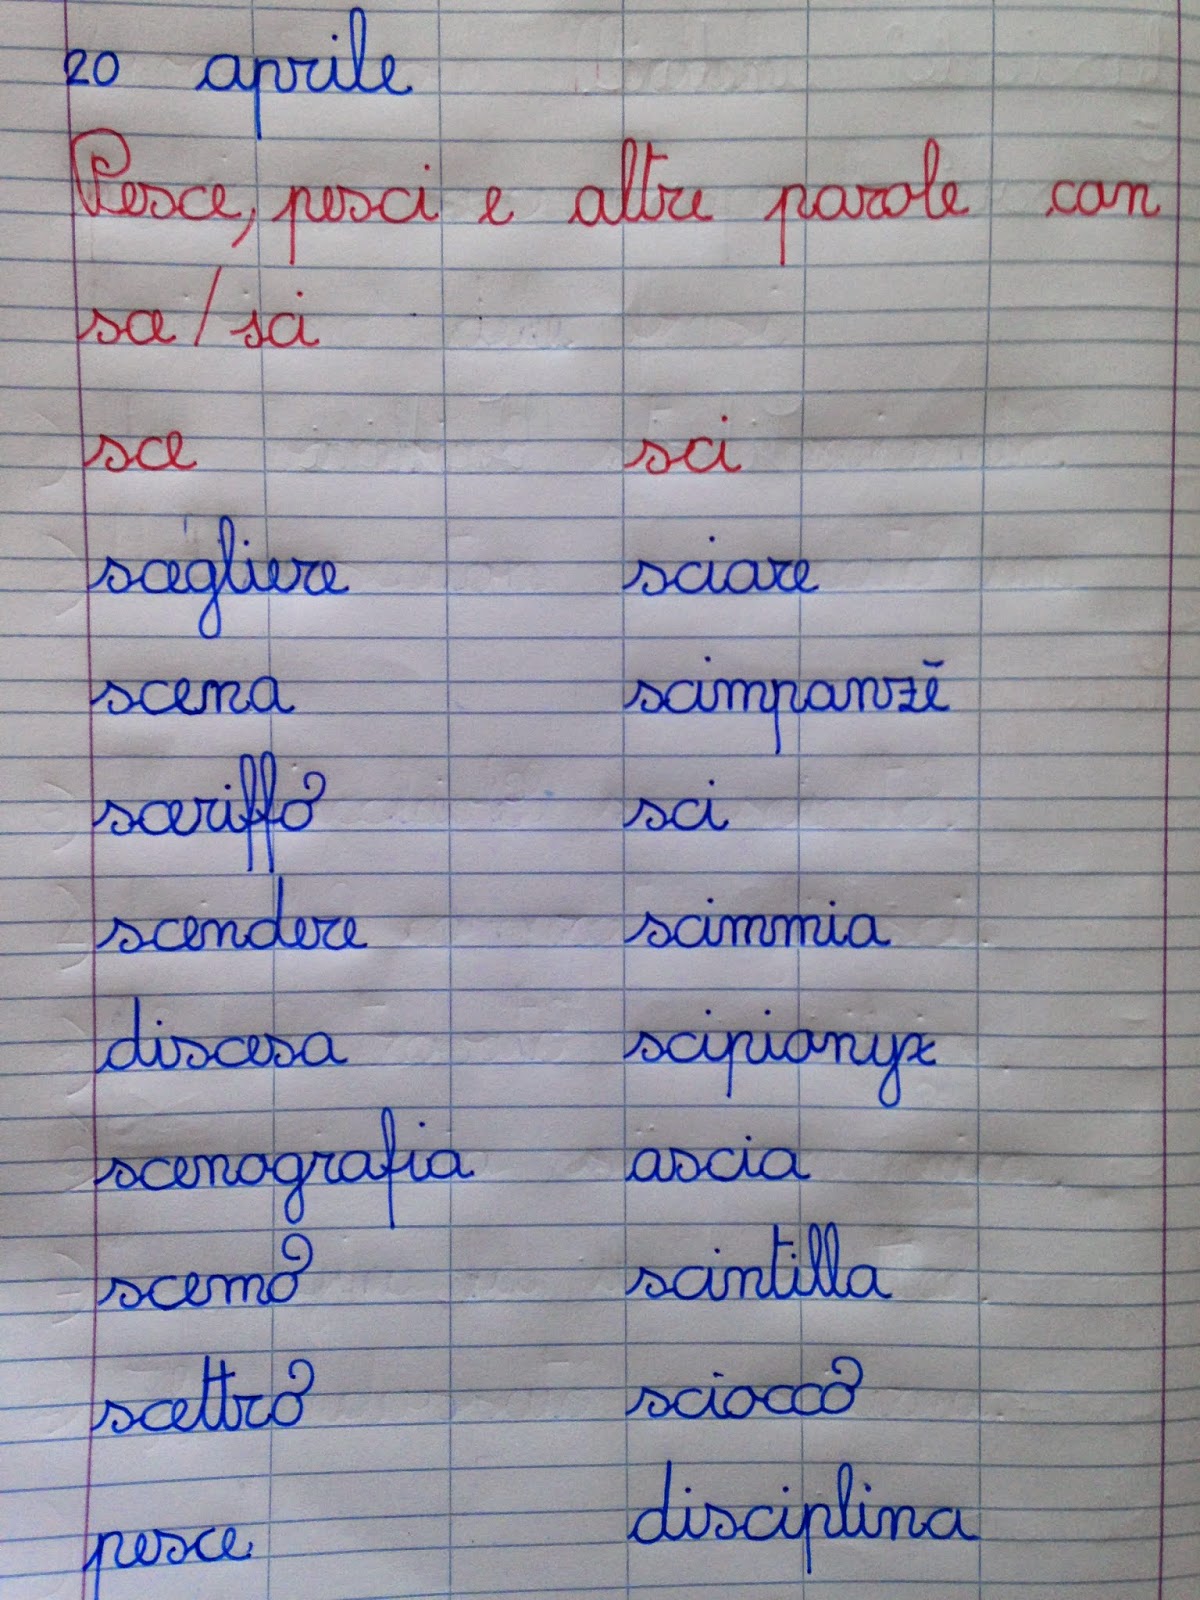 20 aprile
Pesce, pesci e altre parole con
sce/sci
sce sci
scegliere sciare
scena scimpanzé
sceriffo sci
scendere scimmia
discesa scipionyx
scenografia ascia
scemo scintilla
scettro sciocco
pesce disciplina